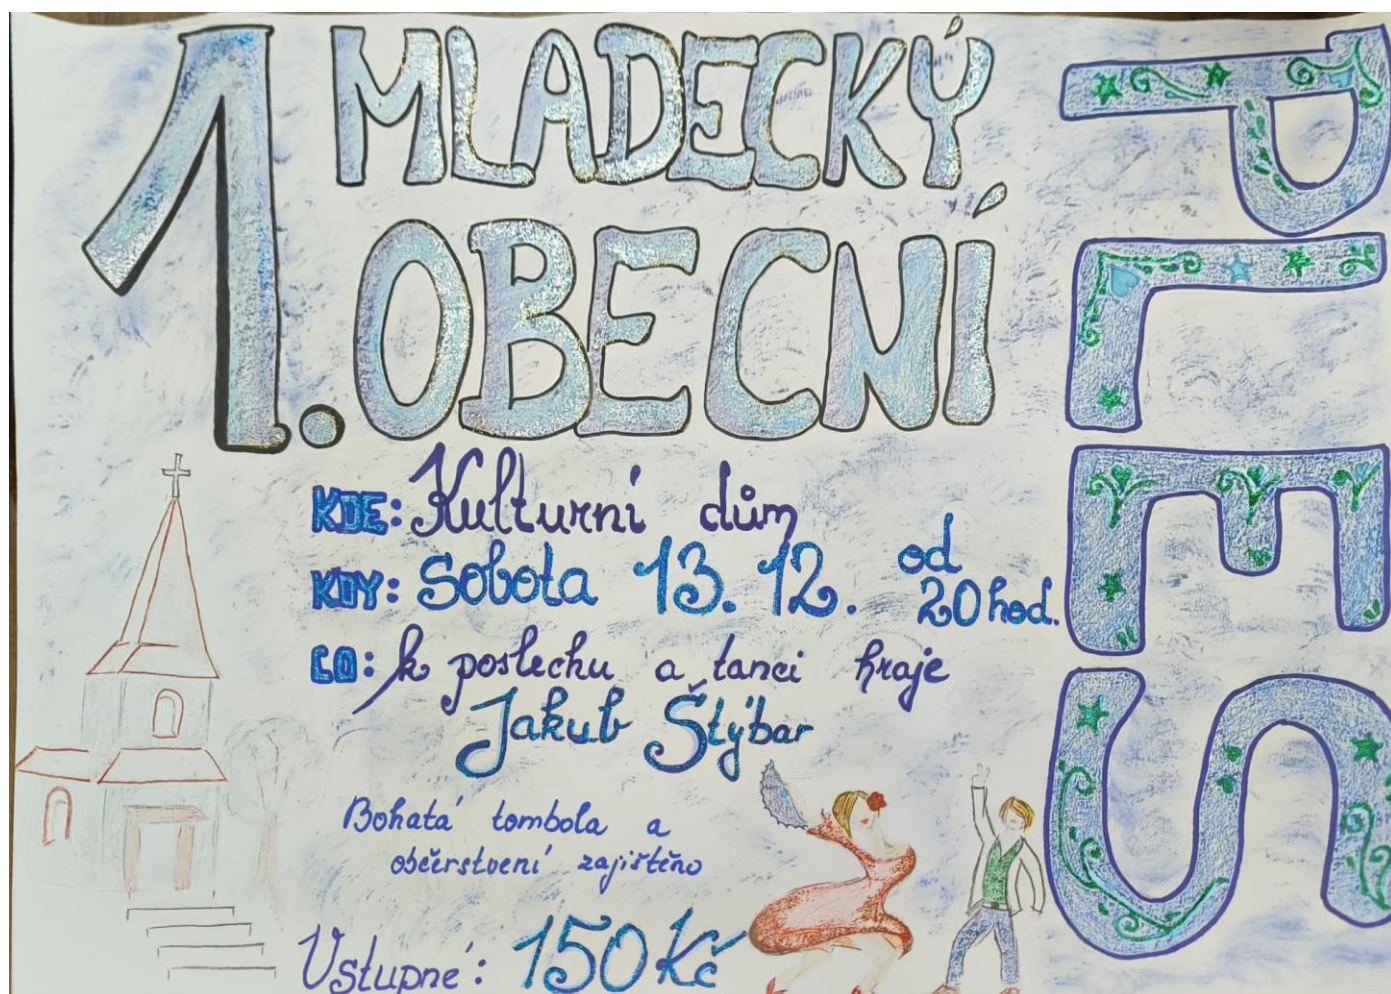 1. MLADECKÝ
OBECNÍ
PLES
KDE: Kulturní dům
KDY: Sobota 13. 12. od 20 hod.
CO: k poslechu a tanci hraje
Jakub Štýbar
Bohatá tombola a
občerstvení zajištěno
Vstupné: 150 Kč